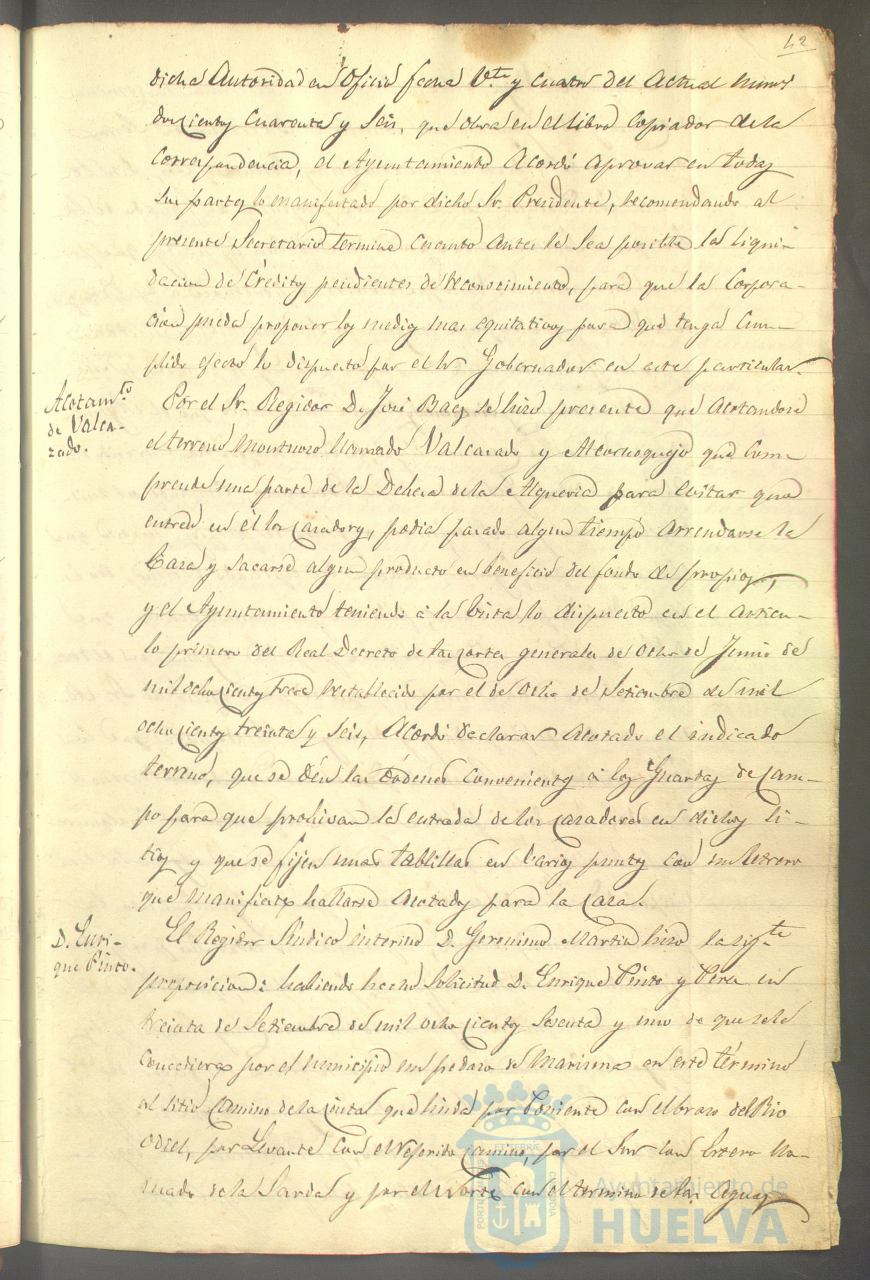 42
dicha Autoridad en Oficio fecha V.te y cuatro del actual numº
doscientos cuarenta y seis, que obra en el libro copiador de la
Correspondencia, el Ayuntamiento Acordó aprovar en todas
sus partes lo manifestado por dicho Sr. Presidente, recomendando al
presente Secretario termine cuanto antes le sea posible la liqui-
dacion de Créditos pendientes de reconocimiento, para que la Corpora-
cion pueda proponer los medios mas equitativos para que tenga cum-
plido efecto lo dispuesto por el Sr. Gobernador en este particular.
Acotam.to
de Valca-
zado.
Por el Sr. Regidor D. José Baez se hizo presente que Acotandose
el terreno montuoso llamado Valcazado y Alcornoquejo que com-
prende una parte de la Dehesa de la Alqueria para evitar que
entren en él los cazadores, podia pasado algun tiempo arrendarse la
Caza y sacarse algun producto en beneficio del fondo de propios,
y el Ayuntamiento teniendo á la vista lo dispuesto en el articu-
lo primero del Real Decreto de las cortes generales de ocho de Junio de
mil ochocientos trece restablecido por el de ocho de Setiembre de mil
ochocientos treinta y seis, Acordó declarar Acotado el indicado
terreno, que se dén las órdenes convenientes á los Guardas de cam-
po para que prohivan la entrada de los cazadores en dichos si-
tios y que se fijen unas tablillas en varios puntos con un letrero
que manifieste hallarse Acotados para la caza.
D. Enri-
que Pinto.
El Regidor Síndico interino D. Geronimo Martin hizo la sig.te
proposicion: habiendo hecho solicitud D. Enrique Pinto y Vera en
treinta de Setiembre de mil ochocientos sesenta y uno de que se le
concediera por el municipio un pedazo de Marisma en este término
al sitio Camino de la cinta que linda por Poniente con el brazo del Rio
Odiel, por Levante con el referido camino, por el Sur con Estero lla-
mado de la Sarda y por el Norte con el termino de las Aguas
Ayuntamiento de
HUELVA